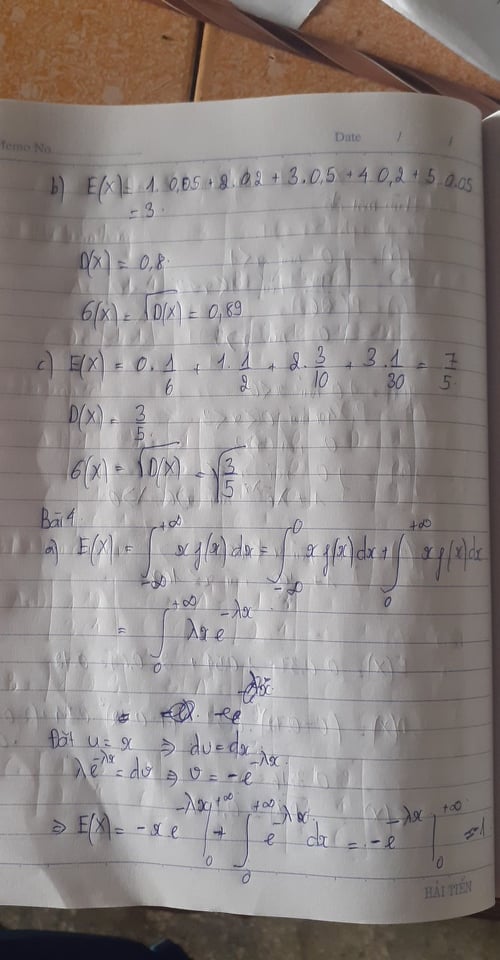 Memo No.
Date / /
b) E(X) = 1. 0,05 + 2. 0,2 + 3. 0,5 + 4 0,2 + 5. 0.05
= 3.
D(X) = 0,8.
б(X) = √D(X) = 0,89
c) E(X) = 0. 1/6 + 1. 1/2 + 2. 3/10 + 3. 1/30 = 7/5.
D(X) = 3/5.
б(X) = √D(X) = √(3/5)
Bài 4
a) E(X) = ∫_{-∞}^{+∞} x f(x) dx = ∫_{-∞}^{0} x f(x) dx + ∫_{0}^{+∞} x f(x) dx
= ∫_{0}^{+∞} λx e^{-λx}
Đặt u = x ⇒ du = dx
λe^{-λx} = dv ⇒ v = -e^{-λx}
⇒ E(X) = -x e^{-λx} |_{0}^{+∞} + ∫_{0}^{+∞} e^{-λx} dx = -e^{-λx} |_{0}^{+∞} = 1
HẢI TIẾN